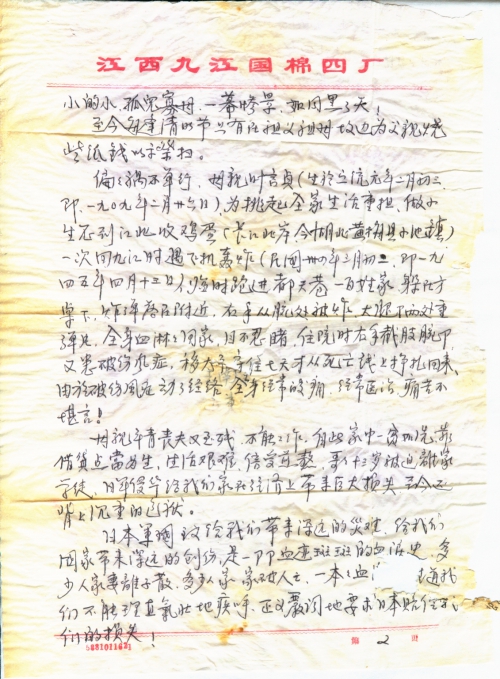 江西九江国棉四厂
小的小,孤儿寡母,一幕惨景,如同黑了天!
至今每年清明节只有在祖父祖母坟边为父亲烧
些纸钱以示祭扫。
偏偏祸不单行,母亲叶言贞(生於宣统元年二月初三
即,一九0九年二月廿六日),为挑起全家生活重担,做小
生意到江北收鸡蛋(长江北岸,今湖北黄梅县小池镇)
一次回九江时遇飞机轰炸(民国卅四年三月初二,即一九
四五年四月十三日)临时跑进都天巷一百姓家躲在方
桌下,炸弹落在附近,右手从腕处被炸,大腿下两处重
弹片,全身血淋淋回家,目不忍睹,住院时右手截肢腕,
又患破伤风症,移太平间住七天才从死亡线上挣扎回来,
由於破伤风症动了经络,全身经常酸痛,经常医治,痛苦不
堪言!
母亲年青丧夫又至残,不能工作,自此家中一贫如洗,靠
借贷典当为生,生活艰难,倍受
哥十三岁被迫离家
学徒,日军侵华给我们家在经济上带来巨大损失,至今还
背上沉重的
日本军国
给我们带来深远的灾难,给我们
国家带来深远的创伤,是一部血迹斑斑的血泪史,多
少人家妻离子散,多少人家家破人亡,一本
血
我
们不能
理直气壮地疾呼,正义严词地要求日本赔偿我
们的损失!
5881011631
第 2 页